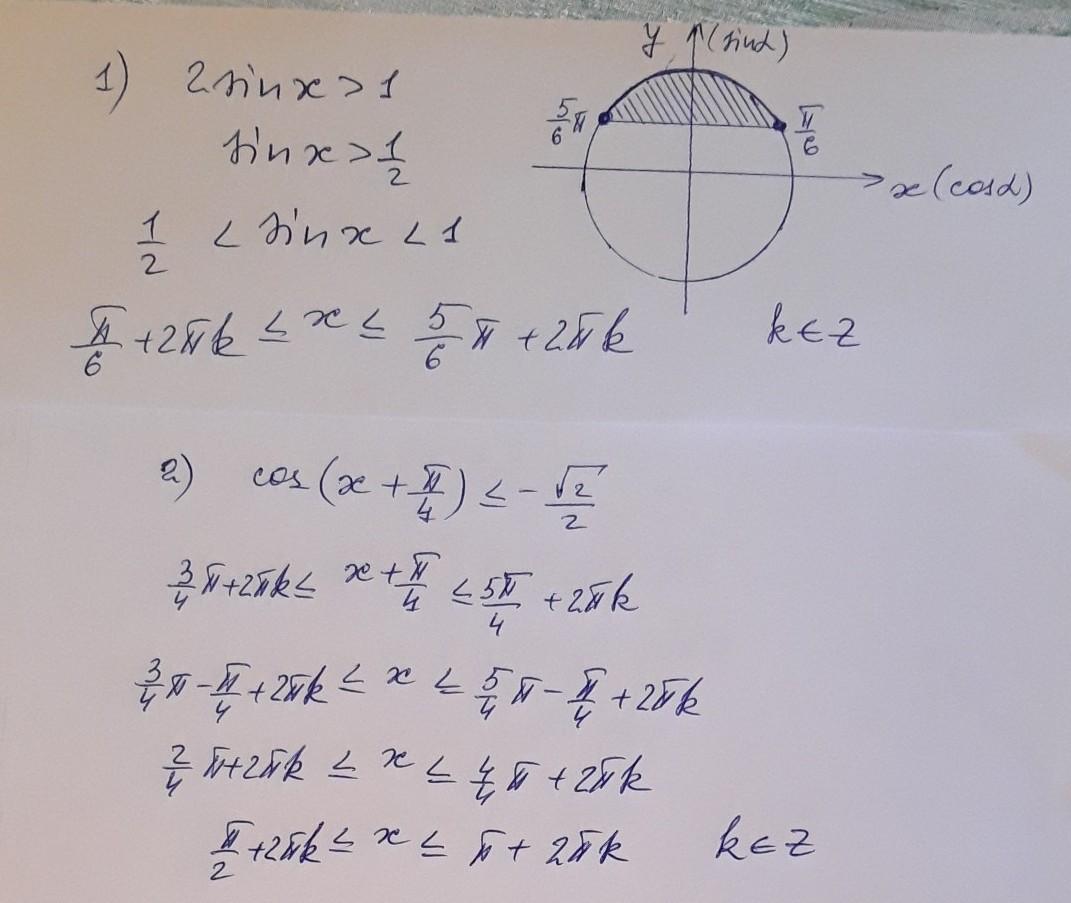 1) 2 sin x > 1
sin x > 1/2
1/2 < sin x < 1
π/6 + 2πk ≤ x ≤ 5/6 π + 2πk k ∈ Z
y (sin α)
5/6 π
π/6
x (cos α)
2) cos(x + π/4) ≤ -√2/2
3/4 π + 2πk ≤ x + π/4 ≤ 5π/4 + 2πk
3/4 π - π/4 + 2πk ≤ x ≤ 5/4 π - π/4 + 2πk
2/4 π + 2πk ≤ x ≤ 4/4 π + 2πk
π/2 + 2πk ≤ x ≤ π + 2πk k ∈ Z